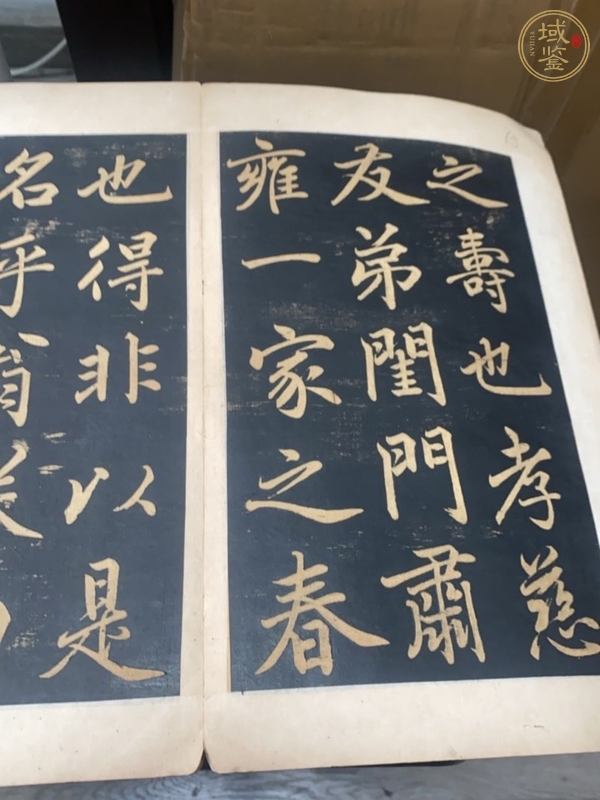 之壽也孝慈
友弟閨門肅
雍一家之春
也得非以是
名乎
域鑒
YUJIAN